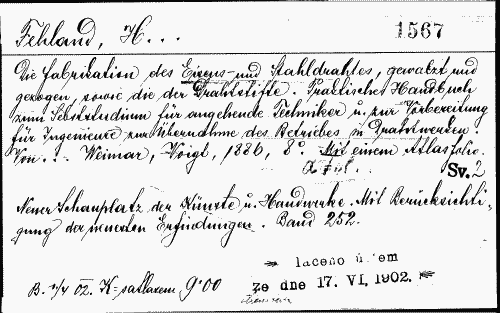 Fehland, H...
1567
Die Fabrikation des Eisens- und Stahldrahtes, gewalzt und
gezogen, sowie die der Drahtstifte. Praktisches Handbuch
zum Selbststudium für angehende Techniker u. zur Vorbereitung
für Ingenieure zur Übernahme des Betriebes in Drahtwerken.
Von... Weimar, Voigt, 1886, 8°. Mit einem Atlas folio.
Sv. 2
Neuer Schauplatz der Künste u. Handwerke. Mit Berücksichti-
gung der neuesten Erfindungen. Band 252.
laceno ú em
B. 7/4 02. K= s atlasem, 9·00
ze dne 17. VI. 1902.